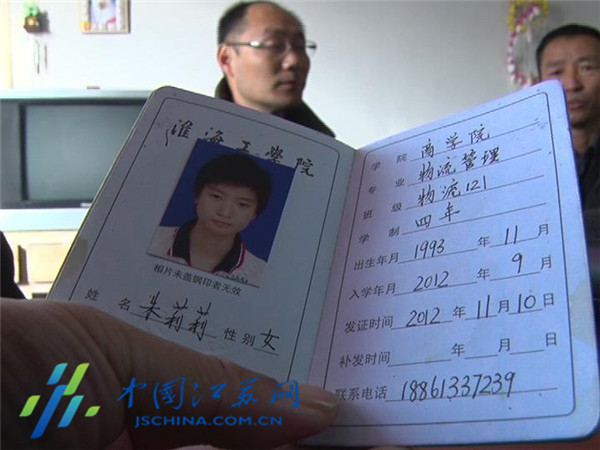 淮海工学院
相片未盖钢印者无效
姓 名 朱莉莉 性别 女
学 院 商学院
专 业 物流管理
班 级 物流121
学 制 四年
出生年月 1993 年 11 月
入学年月 2012 年 9 月
发证时间 2012 年 11 月 10 日
补发时间 年 月 日
联系电话 18861337239
中国江苏网
JSCHINA.COM.CN